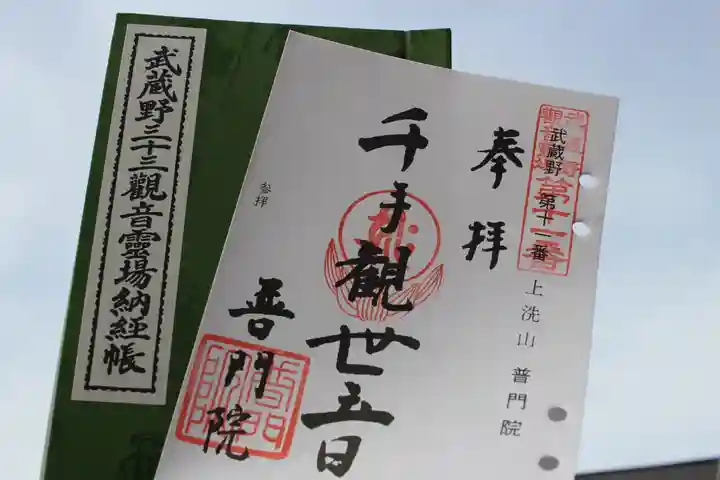 武蔵野三十三觀音靈場納経帳
武蔵野 第十一番
第十一番
上洗山 普門院
奉拝
千手觀世音
参拝
普門院